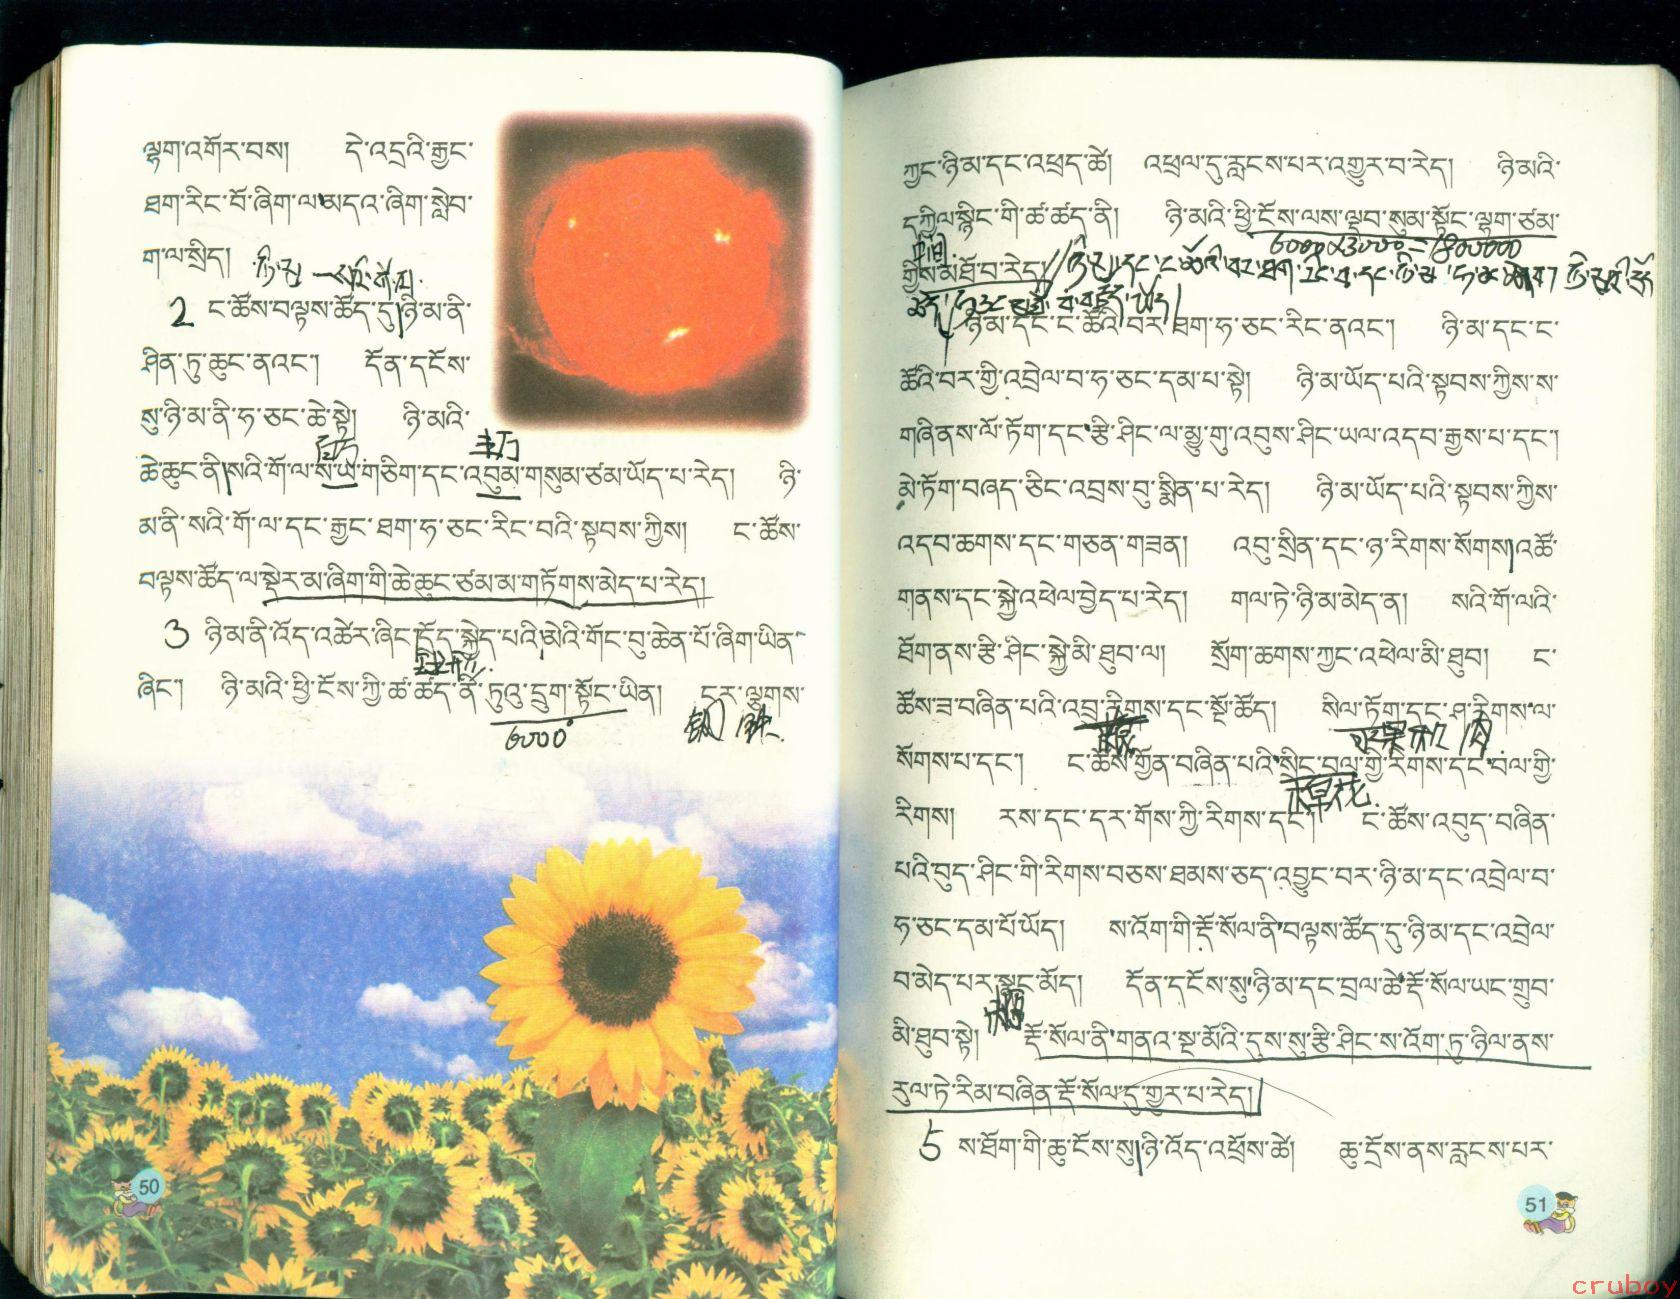 ལྷག་འགོར་བས། དེ་འདྲའི་རྒྱང་
ཐག་རིང་པོ་ཞིག་ལ་མདའ་ཞིག་སླེབ་
ག་ལ་སྲིད།
2 ང་ཚོས་བལྟས་ཚོད་དུ་ཉི་མ་ནི་
ཤིན་ཏུ་ཆུང་ནའང་། དོན་དངོས་
སུ་ཉི་མ་ནི་ཧ་ཅང་ཆེ་སྟེ། ཉི་མའི་
ཆེ་ཆུང་ནི་སའི་གོ་ལ་ས་ཡ་གཅིག་དང་འབུམ་གསུམ་ཙམ་ཡོད་པ་རེད། ཉི་
མ་ནི་སའི་གོ་ལ་དང་རྒྱང་ཐག་ཧ་ཅང་རིང་བའི་སྟབས་ཀྱིས། ང་ཚོས་
བལྟས་ཚོད་ལ་སྡེར་མ་ཞིག་གི་ཆེ་ཆུང་ཙམ་མ་གཏོགས་མེད་པ་རེད།
3 ཉི་མ་ནི་འོད་འཚེར་ཞིང་དྲོད་སྐྱེད་པའི་མེའི་གོང་བུ་ཆེན་པོ་ཞིག་ཡིན་
ཞིང་། ཉི་མའི་ཕྱི་ངོས་ཀྱི་ཚ་ཚད་ནི་ཏུའུ་དྲུག་སྟོང་ཡིན། ངར་ལྕགས་
6000°
50
ཀྱང་ཉི་མ་དང་འཕྲད་ཚེ། འཕྲལ་དུ་རླངས་པར་འགྱུར་བ་རེད། ཉི་མའི་
དཀྱིལ་སྙིང་གི་ཚ་ཚད་ནི། ཉི་མའི་ཕྱི་ངོས་ལས་ལྡབ་སུམ་སྟོང་ལྷག་ཙམ་
གྱིས་མཐོ་བ་རེད།
ཉི་མ་དང་ང་ཚོའི་བར་ཐག་ཧ་ཅང་རིང་ནའང་། ཉི་མ་དང་ང་
ཚོའི་བར་གྱི་འབྲེལ་བ་ཧ་ཅང་དམ་པ་སྟེ། ཉི་མ་ཡོད་པའི་སྟབས་ཀྱིས་ས་
གཞིནས་ལོ་ཏོག་དང་རྩི་ཤིང་ལ་མྱུ་གུ་འབུས་ཤིང་ཡལ་འདབ་རྒྱས་པ་དང་།
མེ་ཏོག་བཞད་ཅིང་འབྲས་བུ་སྨིན་པ་རེད། ཉི་མ་ཡོད་པའི་སྟབས་ཀྱིས་
འདབ་ཆགས་དང་གཅན་གཟན། འབུ་སྲིན་དང་ཉ་རིགས་སོགས།འཚོ་
གནས་དང་སྐྱེ་འཕེལ་བྱེད་པ་རེད། གལ་ཏེ་ཉི་མ་མེད་ན། སའི་གོ་ལའི་
ཐོགནས་རྩི་ཤིང་སྐྱེ་མི་ཐུབ་ལ། སྲོག་ཆགས་ཀྱང་འཕེལ་མི་ཐུབ། ང་
ཚོས་ཟ་བཞིན་པའི་འབྲུ་རིགས་དང་སྔོ་ཚོད། སིལ་ཏོག་དང་ཤ་རིགས་ལ་
སོགས་པ་དང་། ང་ཚོས་གྱོན་བཞིན་པའི་སྲིང་བལ་གྱི་རིགས་དང་བལ་གྱི་
棉花
རིགས། རས་དང་དར་གོས་ཀྱི་རིགས་དང་། ང་ཚོས་འབུད་བཞིན་
པའི་བུད་ཤིང་གི་རིགས་བཅས་ཐམས་ཅད་འབྱུང་བར་ཉི་མ་དང་འབྲེལ་བ་
ཧ་ཅང་དམ་པོ་ཡོད། ས་འོག་གི་རྡོ་སོལ་ནི་བལྟས་ཚོད་དུ་ཉི་མ་དང་འབྲེལ་
བ་མེད་པར་སྣང་མོད། དོན་དངོས་སུ་ཉི་མ་དང་བྲལ་ཚེ་རྡོ་སོལ་ཡང་གྲུབ་
མི་ཐུབ་སྟེ། རྡོ་སོལ་ནི་གནའ་སྔ་མོའི་དུས་སུ་རྩི་ཤིང་ས་འོག་ཏུ་ཉིལ་ནས་
རུལ་ཏེ་རིམ་བཞིན་རྡོ་སོལ་དུ་གྱུར་པ་རེད།
5 ས་ཐོག་གི་ཆུ་ངོས་སུ་ཉི་འོད་འཕྲོས་ཚེ། ཆུ་དྲོས་ནས་རླངས་པར་
51
cruboy